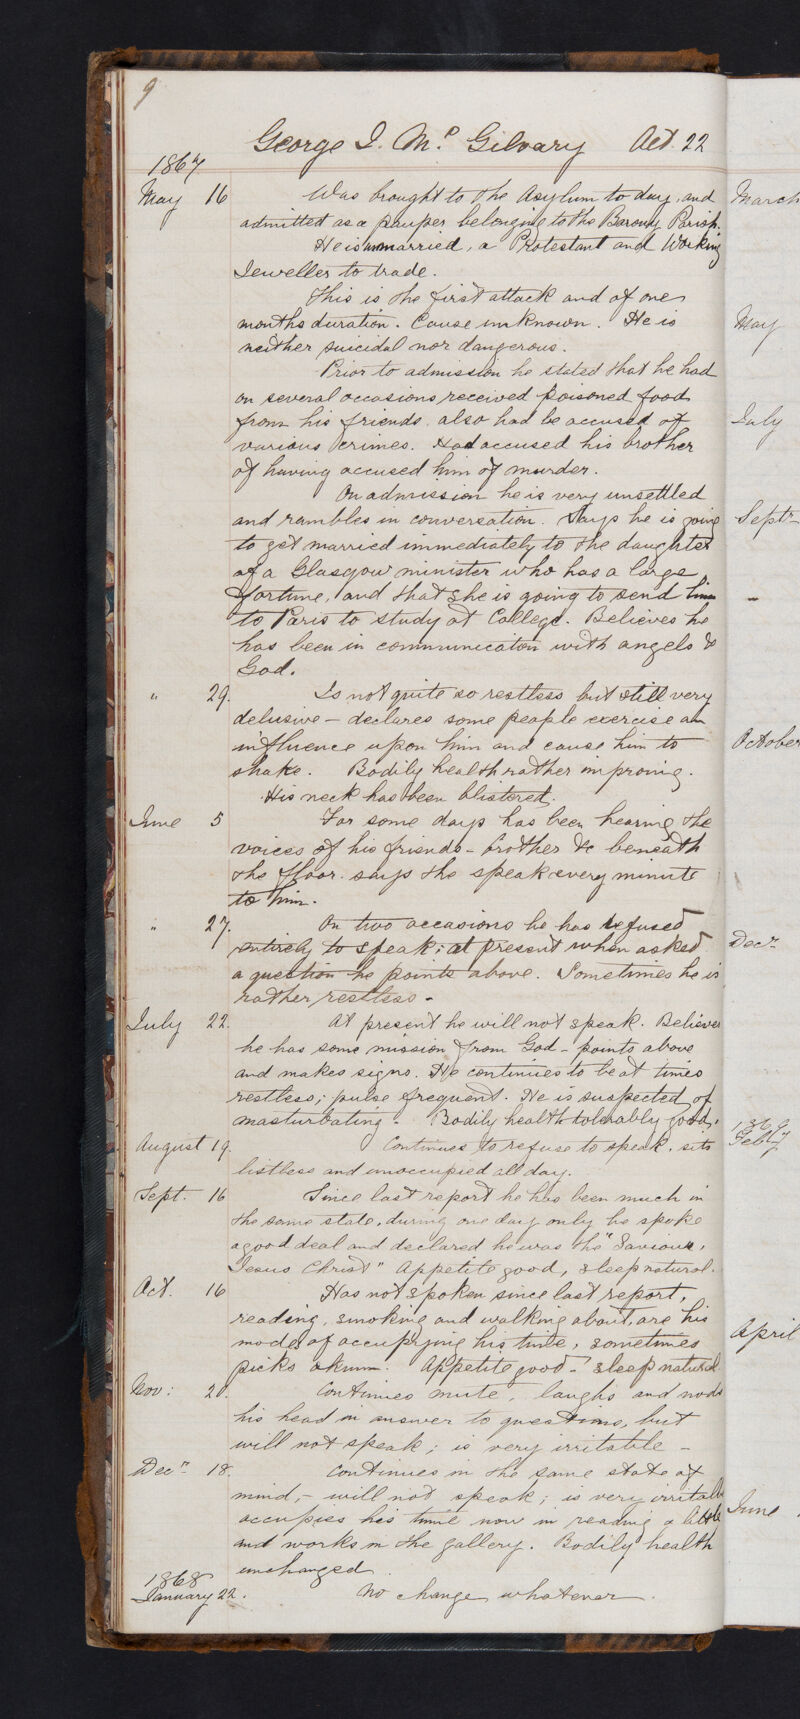 9
George I. Mc Gilvary Aet. 22
1867
May 16 Was brought to the Asylum to day, and
admitted as a pauper belonging to the Barony Parish.
He is unmarried, a Protestant and Working
Jeweller to trade.
This is the first attack and of one
months duration. Cause unknown. He is
neither suicidal nor dangerous.
Prior to admission he stated that he had
on several occasions received poisoned food
from his friends, also had be accused of
various crimes. Had accused his brother
of having accused him of murder.
On admission he is very unsettled
and rambles in conversation. Says he is going
to get married immediately to the daughter
of a Glasgow minister who has a large
fortune, and that she is going to send him
to Paris to study at College. Believes he
has been in communication with angels &
God.
" 29. Is not quite so restless but still very
delusive – declares some people exercise an
influence upon him and cause him to
shake. Bodily health rather improving.
His neck has been blistered.
June 5 For some days has been hearing the
voices of his friends – brother &c beneath
the floor. says the speak every minute
to him.
" 27. On two occasions he has refused
entirely to speak; at present when asked
a question he points above. Sometimes he is
rather restless –
July 22. At present he will not speak. Believes
he has some mission from God – points above
and makes signs. He continues to be at times
restless; pulse frequent. He is suspected of
masturbating – Bodily health tolerably good.
August 19. Continues to refuse to speak, sits
listless and unoccupied all day.
Sept. 16 Since last report he has been much in
the same state, during one day only he spoke
a good deal and declared he was the "Saviour,
Jesus Christ" Appetite good, sleep natural.
Oct. 16 Has not spoken since last report,
reading, smoking and walking about, are his
modes of occupying his time, sometimes
picks okum. Appetite good – sleep natural
Nov: 20. Continues mute, laughs and nods
his head in answer to questions, but
will not speak; is very irritable –
Decr. 18. Continues in the same state of
mind, – will not speak; is very irritable
occupies his time now in reading a little
and works in the gallery. Bodily health
unchanged.
1868
January 22. No change whatever.
March
May
July
Sept –
–
October
Decr.
1869
Feby
April
June